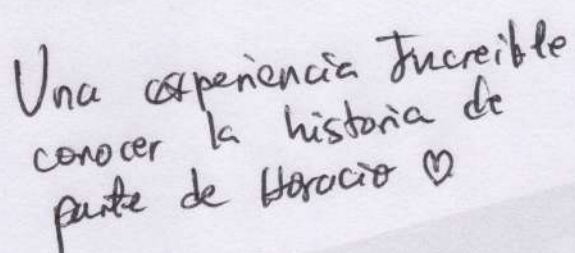 Una experiencia Increible
conocer la historia de
parte de Horacio ♡